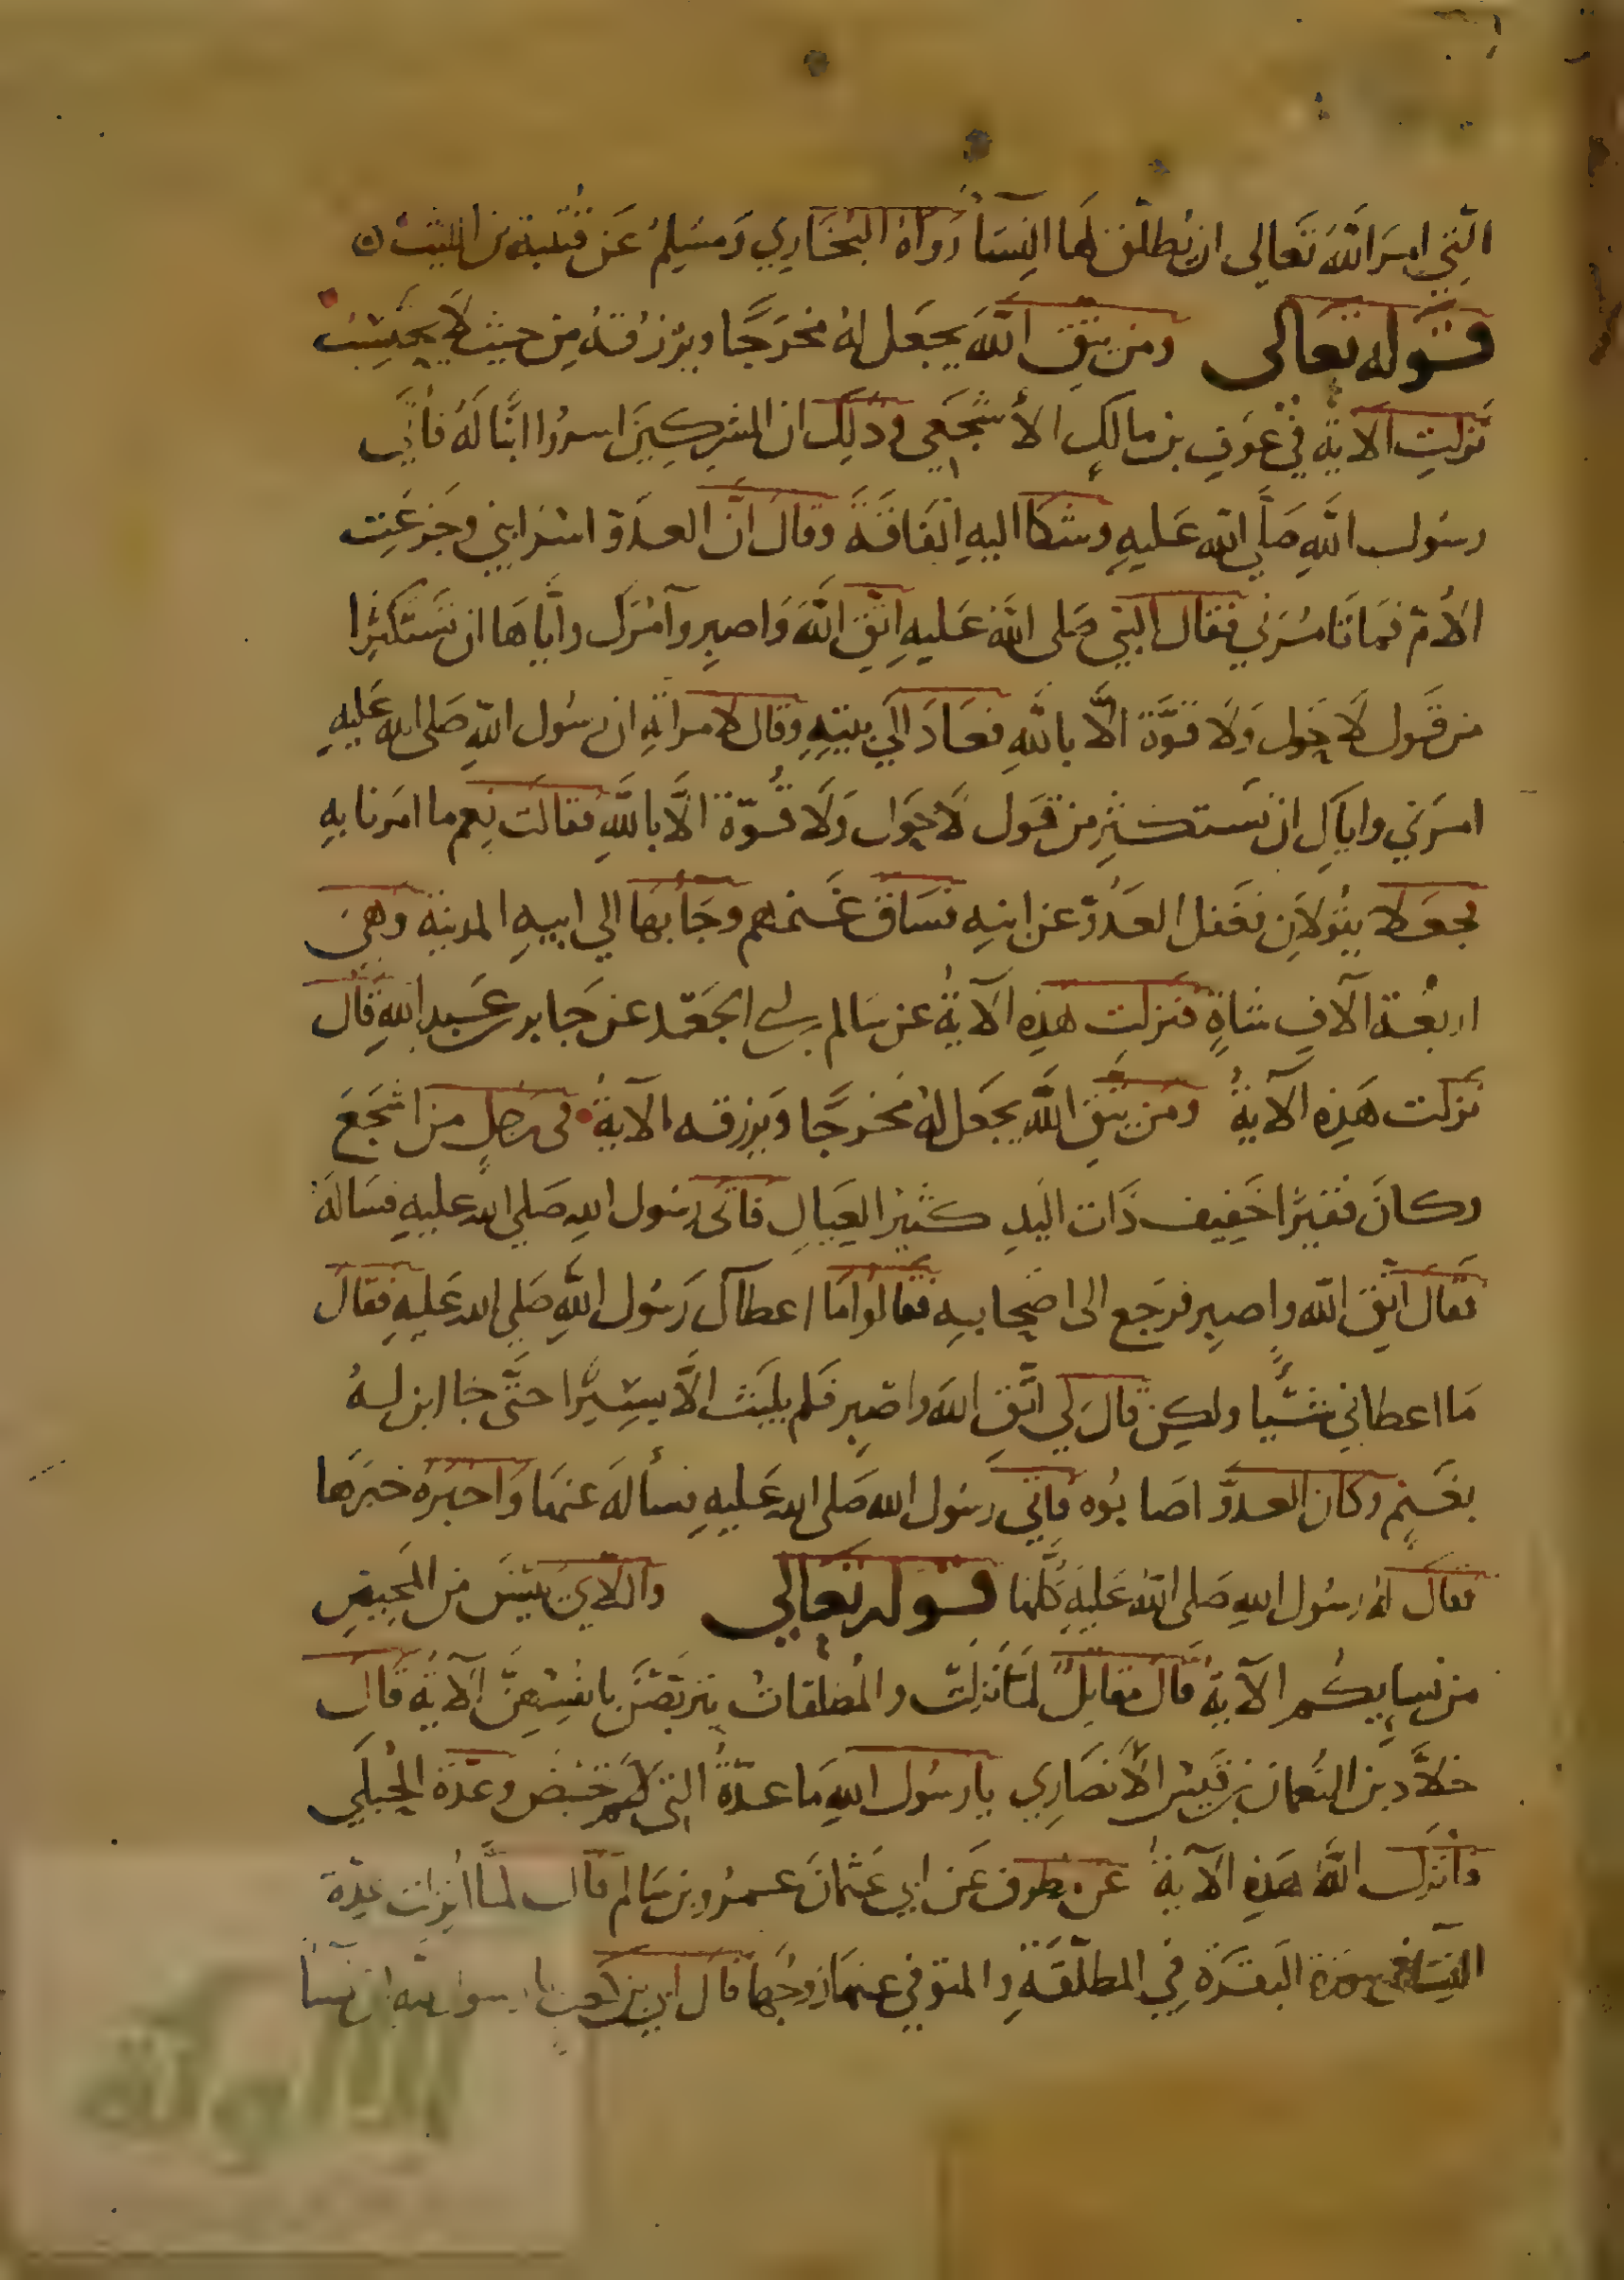 الَّتِي امرَ اللَّهُ تَعَالى ان يُطلّق لهَا النِّسَا رَوَاهُ البُخَارِي وَمسْلِمُ عَن قُتَيبة عن الليث
قوله تعالى ومن يتقِ اللَّهَ يجعَل لهُ مخرَجًا ويرْزُقهُ مِن حيث لا يحتسِبُ
نَزلتِ الآيةُ في عَوفِ بن مالكٍ الأشجَعي وذلِك ان المشركِينَ اسرُوا ابنًا لَهُ فأتَى
رسُول اللَّهِ صَلَّى اللَّه عَليهِ وشكا اليهِ الفَاقَةَ وقالَ انَّ العدَوّ اسَر ابني وجَزعَتِ
الأمّ فمَا تَامُرني فقال النبي صَلى اللَّه عَليهِ اتّقِ اللَّهَ وَاصبِر وآمُرك وايّاهَا ان تَستَكثِرا
من قَول لَا حَول وَلَا قوَّة الَّا باللَّهِ فعَادَ الَي بيتِهِ وقال لامراتهِ ان رسُول اللهِ صَلى الله عَليهِ
امرَني واياكِ ان نَستكثِر من قَول لَا حَول وَلَا قُوّة الَّا باللَّهِ فقالت نِعم ما امَرنا بهِ
فجعَلا يقُولانِ فغَفل العَدُوّ عن ابنهِ فسَاق غَنمهم وجَا بهَا الي ابيهِ المدينة وهيَ
اربعَة آلافِ شاةٍ فنزلت هذِه الآيةُ عن سَالم بن ابي الجَعْد عن جَابر بن عَبدِ اللهِ قال
نزلت هَذِه الآيةُ ومَن يتقِ اللَّهَ يجعَل لهُ مخرجًا وَيرزقه الآيةُ في رَجلٍ من اشجَعَ
وكانَ فقيْرًا خَفِيف ذَات اليَدِ كثيْر العِيَالِ فاتَى رسُول اللهِ صَلي الله عليهِ فسَالَهُ
فقَال اتّقِ اللّه واصبِر فرَجَع الى اصْحَابهِ فقالوا مَا اعطاكَ رَسُول اللَّهِ صَلى الله عَليهِ فقالَ
مَا اعطاني شيْئًا ولكِن قالَ لي اتَّقِ اللهَ واصْبِر فَلم يلبَث الَّا يسِيرًا حتَّى جا ابن لهُ
بغَنمٍ وكَان العدوّ اصَابوُه فاتي رسُول الله صَلى الله عَليهِ فسألهَ عنهَا وَاخبرَهُ خبَرَهَا
فقالَ لهُ رسُول اللهِ صَلى اللهُ عَليهِ كُلْهَا قوله تعالي واللَاي يئِسْنَ من المحِيضِ
من نِسايِكُم الآيةُ قالَ مقاتِلٌ لمّا نَزلَت والمُطلقاتُ يتربّصْنَ بانفُسِهِنَّ الآيةُ قال
خلَّاد بن النُعمان بن قَيْس الأَنصَاري يا رسُول اللهِ مَا عدّةُ التي لم تحِض وعدّة الحُبلَي
فأنزَل اللَّهُ هذِه الآيةُ عَن مطرف عَن ابي عثمانَ عمرُو بن سَالم قال لمَّا أنزلت عِدّة
النسَا في سورة البَقَرَة فِي المطلّقَةِ والمتوفي عنهَا زوجُها قال ابي بن كعب يا رسول الله ان نِسَا